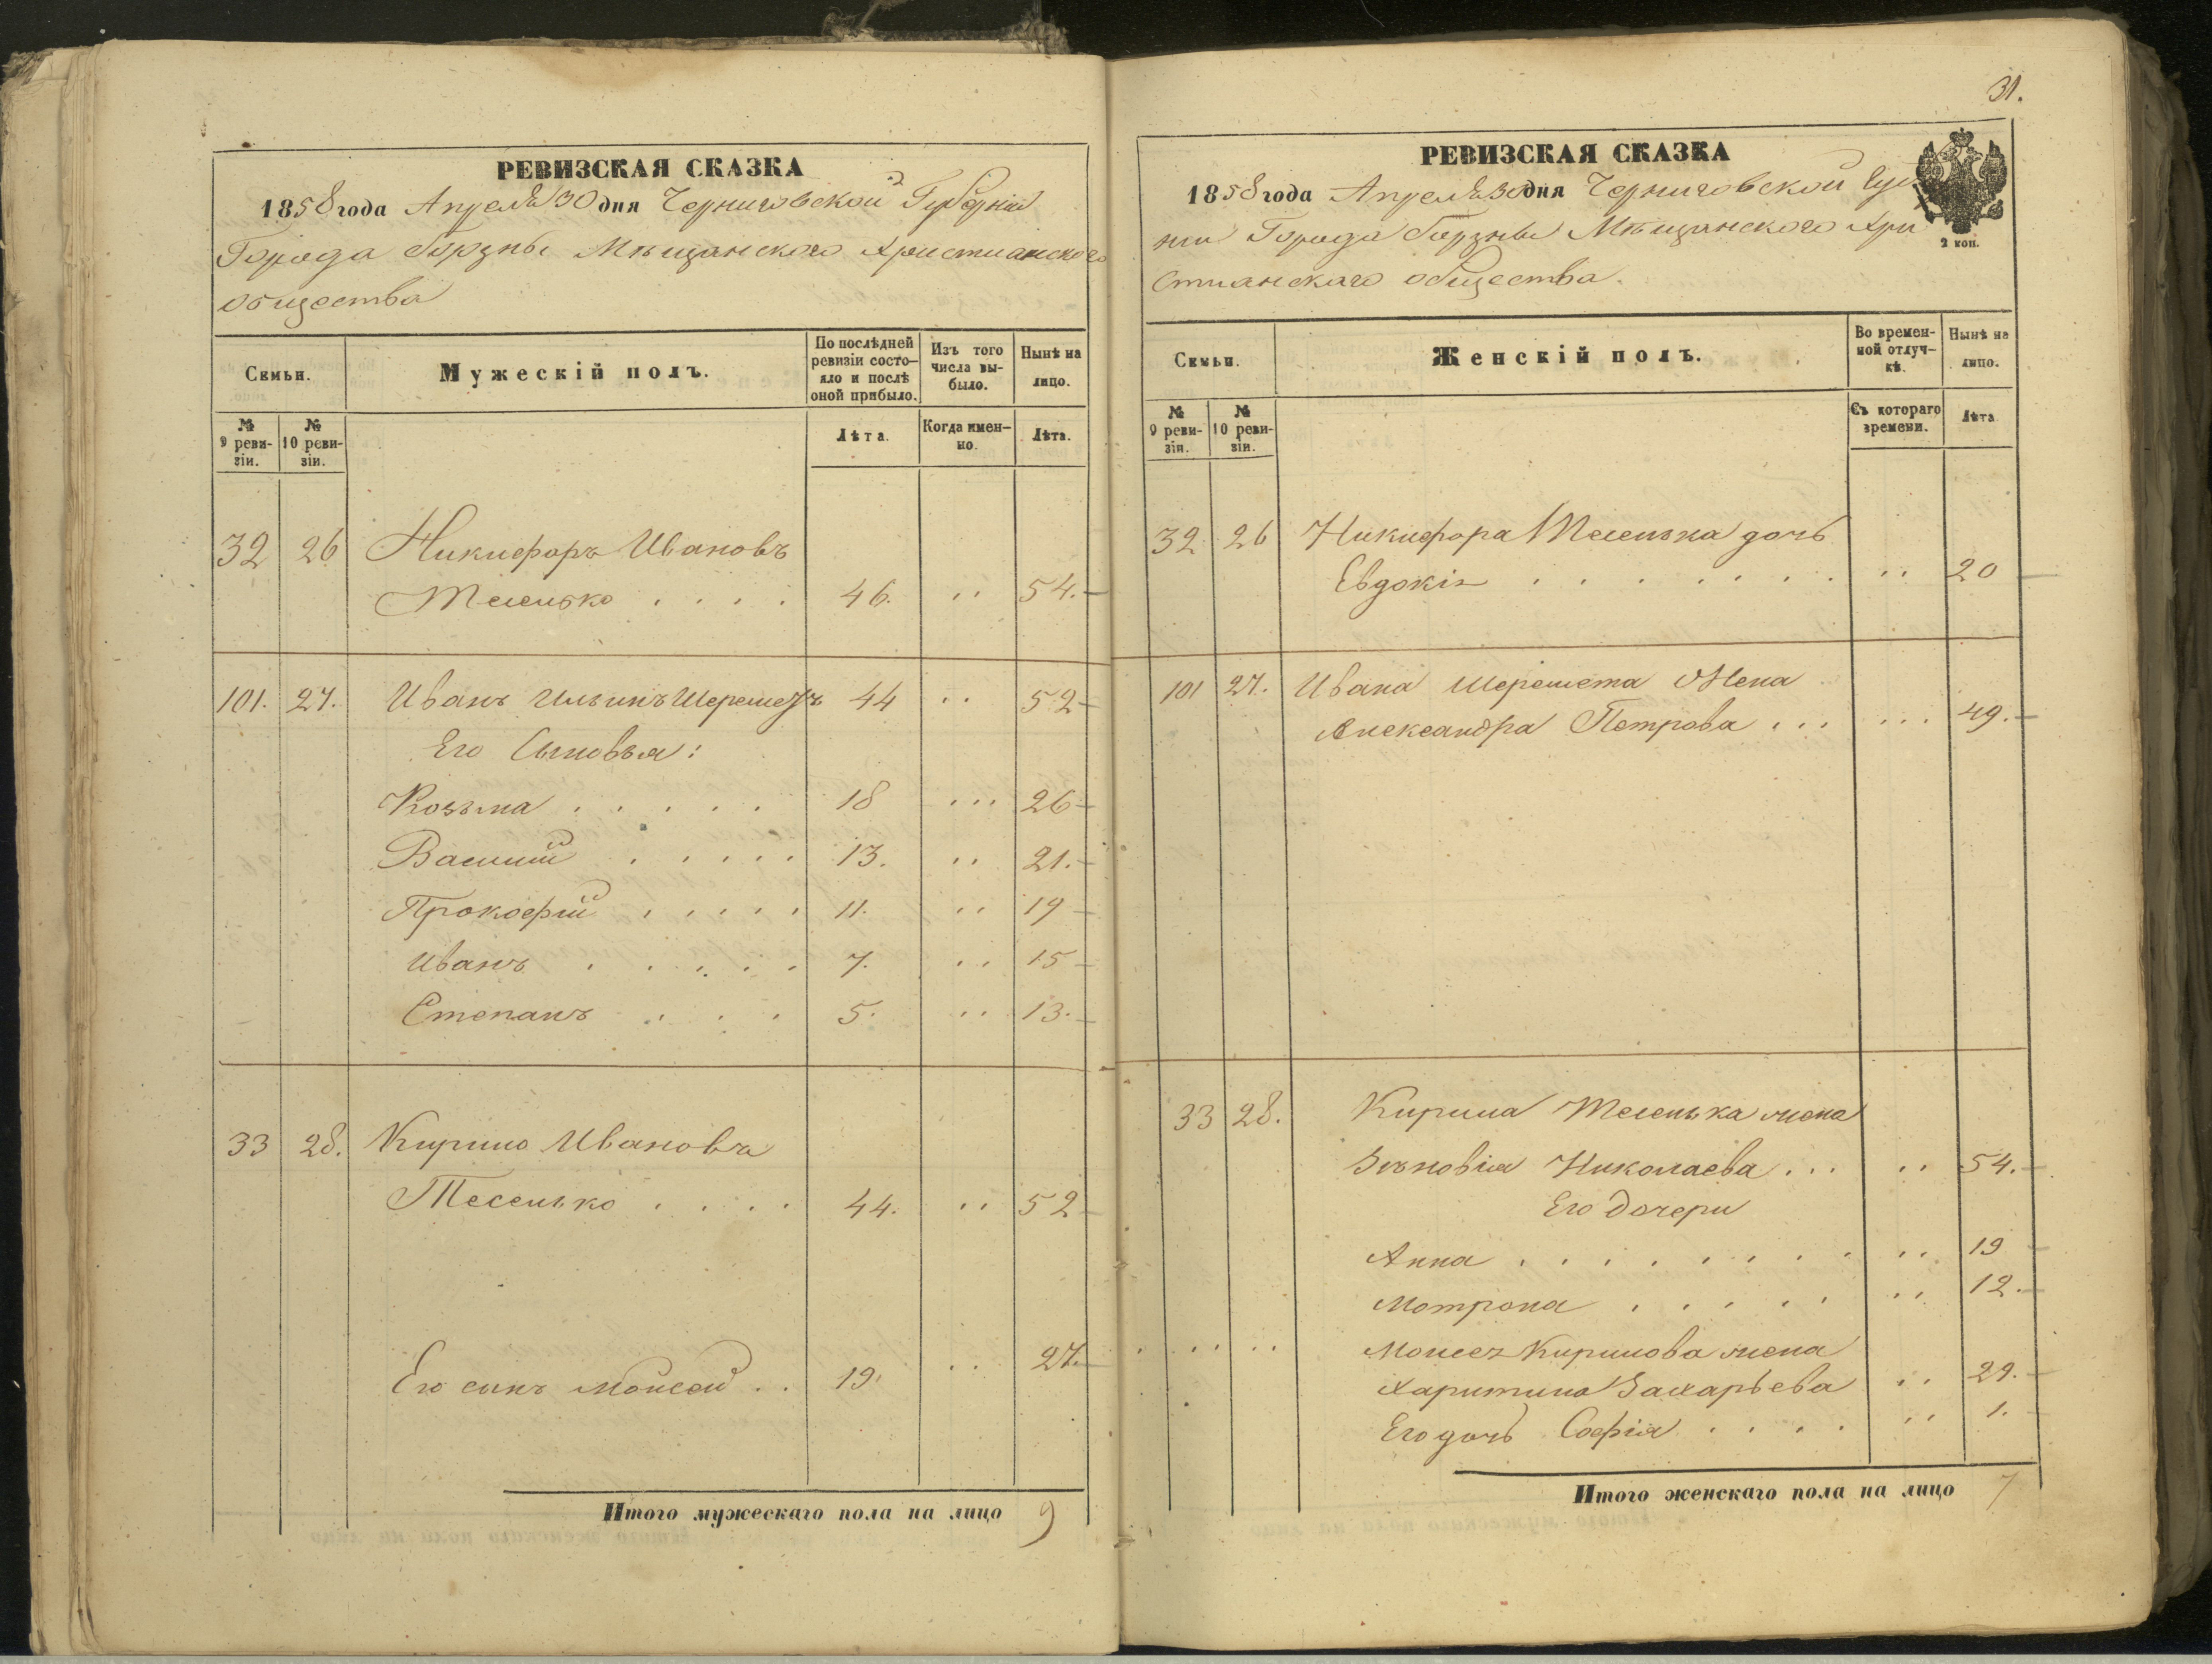 РЕВИЗСКАЯ СКАЗКА
1858 года Апреля 30 дня Черниговской Губерніи
Города Борзны Мѣщанского Христианского
общества
Семьи.
Мужескій полъ.
По послѣдней ревизіи состояло и послѣ оной прибыло.
Изъ того числа выбыло.
Нынѣ на лицо.
№ 9 ревизіи.
№ 10 ревизіи.
Лѣта.
Когда именно.
Лѣта.
32 26 Никифоръ Ивановъ
Тесенько . . . . 46. .. 54.
101. 27. Иванъ Ильинъ Шереметъ 44 .. 52
Его Сыновья:
Козьма . . . . . 18 ... 26
Василий . . . . . 13. .. 21.
Прокофий . . . . . 11. .. 19
Иванъ . . . . . 7. .. 15
Степанъ . . . . 5. .. 13.
33 28. Кирило Ивановъ
Тесенько . . . . 44. .. 52
Его сынъ Моисей . . 19. .. 27.
Итого мужескаго пола на лицо 9
31.
РЕВИЗСКАЯ СКАЗКА
1858 года Апреля 30 дня Черниговской Губер
нии Города Борзны Мѣщанского Хри
стианскаго общества.
2 коп.
Семьи.
Женскій полъ.
Во временной отлучкѣ.
Нынѣ на лицо.
№ 9 ревизіи.
№ 10 ревизіи.
Съ котораго времени.
Лѣта
32 26 Никифора Тесенька дочь
Евдокія . . . . . . . .. 20
101 27. Ивана Шеремета Жена
Александра Петрова ... ... 49.
33 28. Кирила Тесенька жена
Зѣновія Николаева ... .. 54.
Его дочери
Анна . . . . . . . . .. 19
Мотрона . . . . . .. 12.
. .. .. Моисея Кирилова жена
Харитина Захарьева .. 29.
Его дочь Софія . . . . .. 1.
Итого женскаго пола на лицо 7